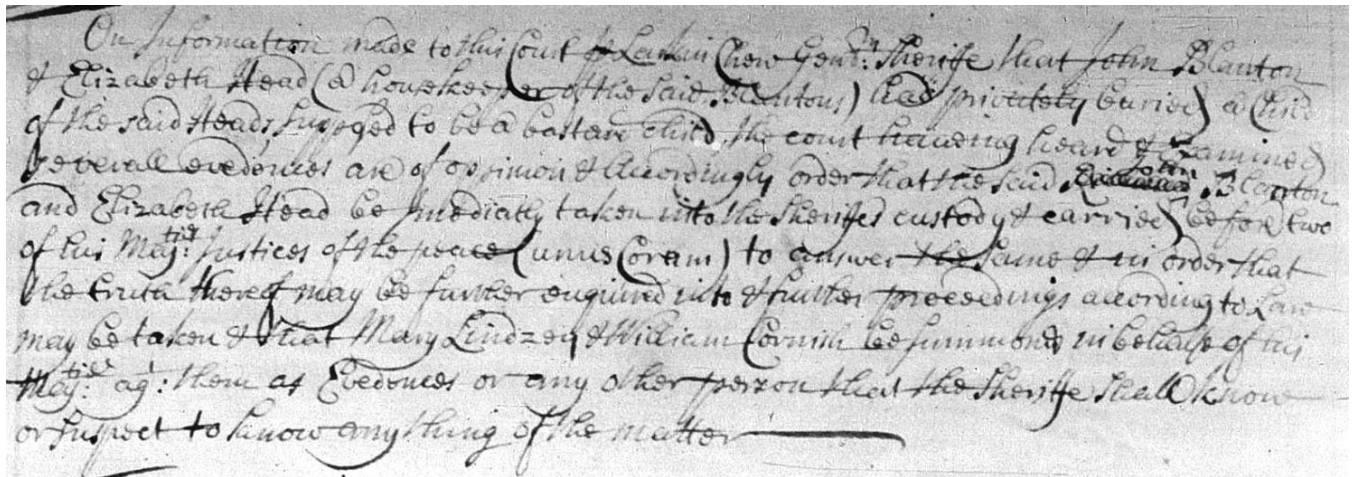 On Information made to this Court p Larkin Chew Gentn: Sheriffe that John Blanton
& Elizabeth Head (a housekeeper of the said Blantons) had privitely buried a Child
of the said Heads supposed to be a bastard child, the court haveing heard & Examined
Severall evedences are of oppinion & Accordingly order that the said John Blanton
and Elizabeth Head be Imediatly taken into the Sheriffes custody & carried before two
of his Majties: Justices of the peace (unus Coram) to answer the same & in order that
the truth thereof may be further enquired into & further proceedings according to Law
may be taken & that Mary Lindzey & William Cornish be summoned in behalfe of his
Majties: agt: them as Evedences or any other perzon that the Sheriffe shall know
or suspect to know any thing of the matter